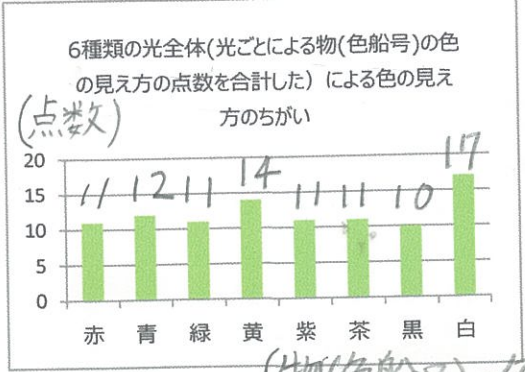 6種類の光全体(光ごとによる物(色船号)の色
の見え方の点数を合計した）による色の見え
方のちがい
(点数)
20
15
10
5
0
11 12 11 14 11 11 10 17
赤 青 緑 黄 紫 茶 黒 白